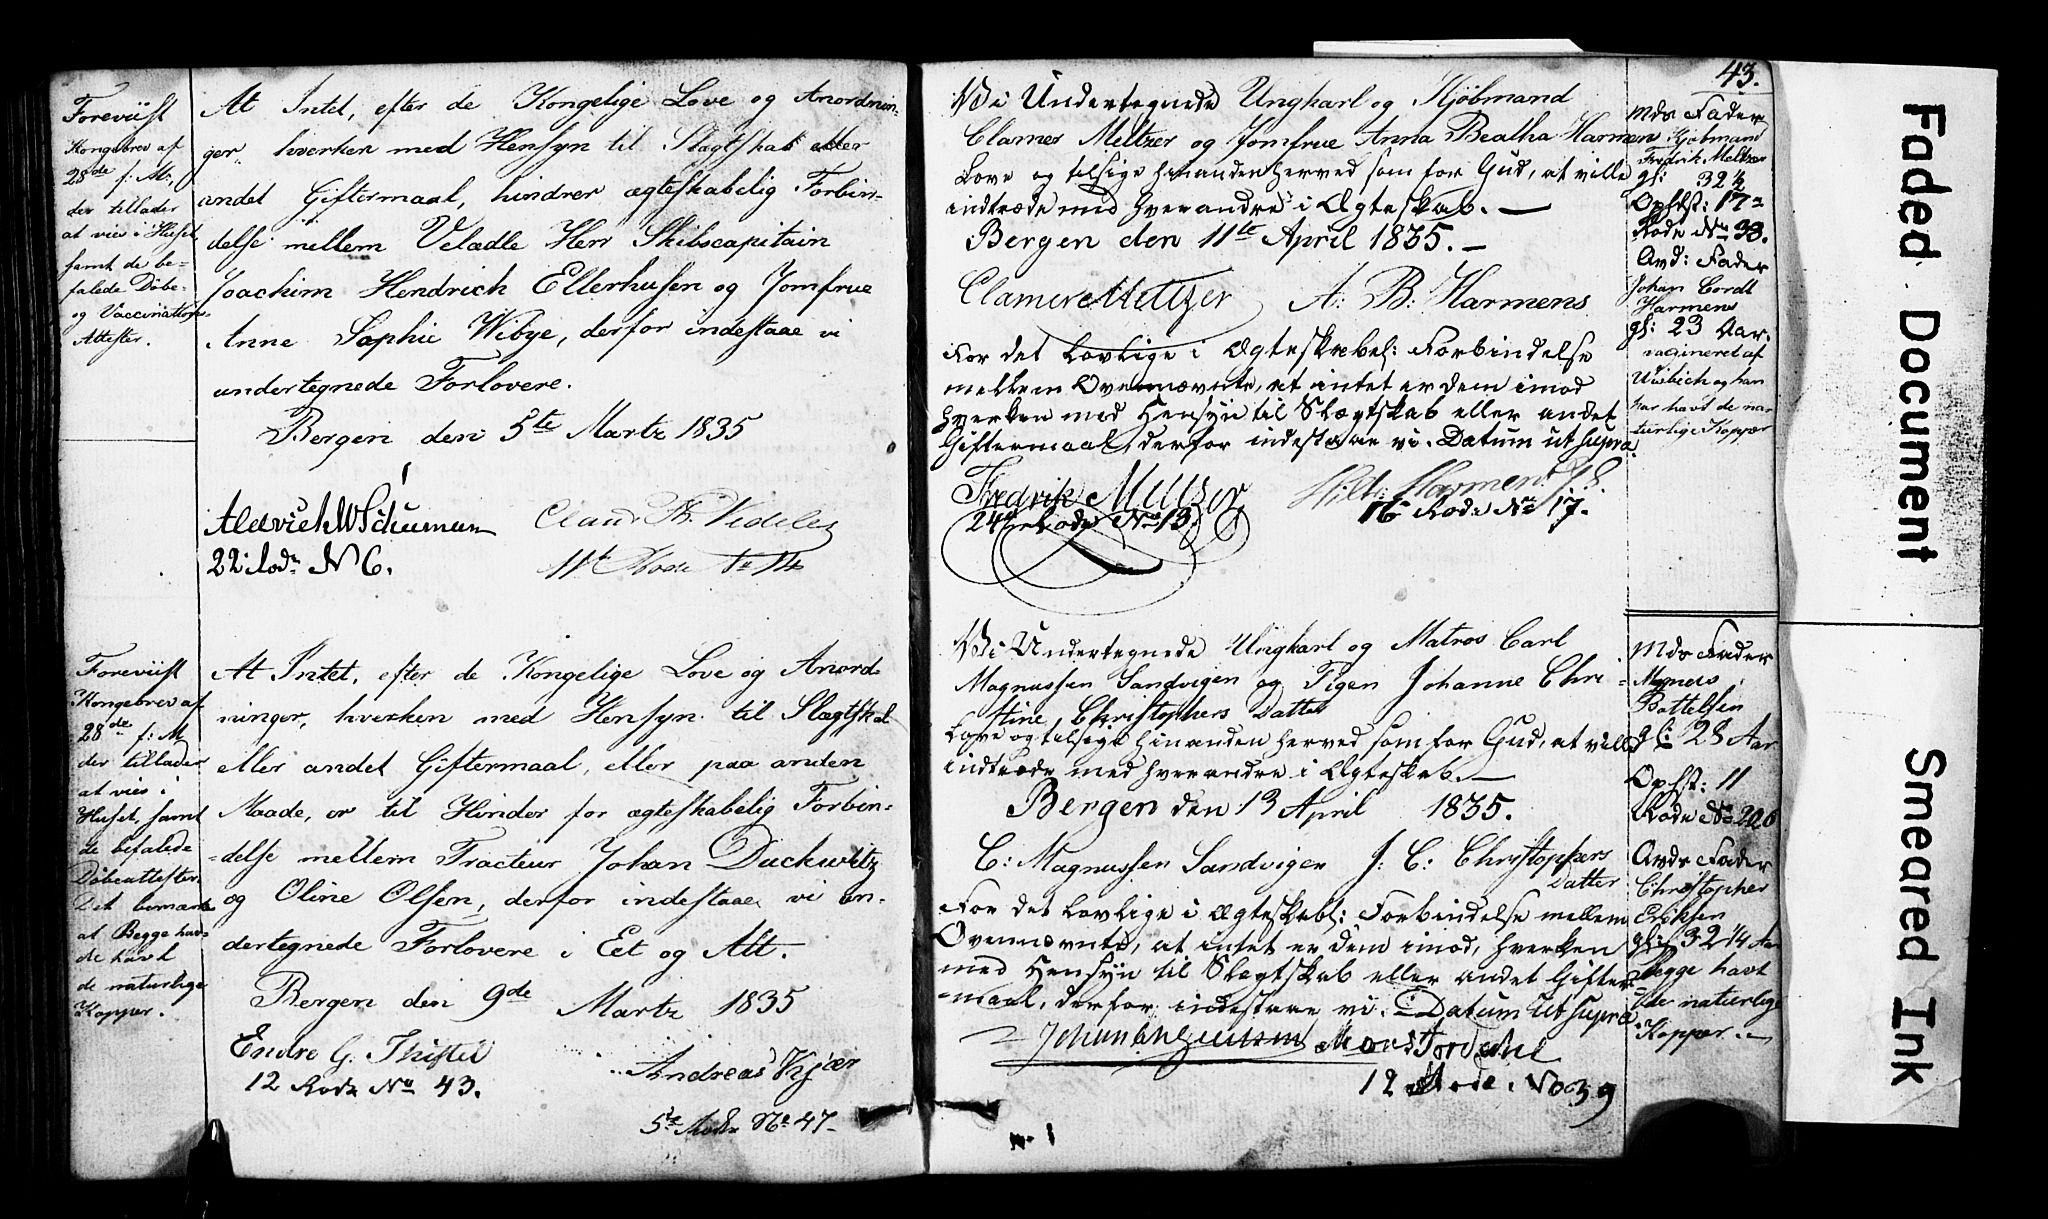 Foreviist
Kongebrev af
28de f: M:,
der tillader
at vies i Huset
samt de be=
falede Döbe-
og Vaccinations
Attester.
At Intet, efter de Kongelige Love og Anordnin-
ger, hverken med Hensyn til Slægtskab eller
andet Giftermaal, hindrer ægteskabelig Forbin-
delse mellem Velædle Herr Skibscapitain
Joachim Hendrich Ellerhusen og Jomfrue
Anne Sophie Wibye, derfor indestaae vi
undertegnede Forlovere.
Bergen den 5te Martz 1835
Schumann
22 Rode No 6.
11te Rode No 14
Foreviist
Kongebrev af
28de f: M
der tillader
at vies i
Huset, samt
de befalede
Döbeattester.
Det bemærkes
at Begge hav-
de havt
de naturlige
Kopper.
At Intet, efter de Kongelige Love og Anord-
ninger, hverken med Hensyn til Slægtskab
eller andet Giftermaal, eller paa anden
Maade, er til Hinder for ægteskabelig Forbin=
=delse mellem Tracteur Johan Duckwitz
og Oline Olsen, derfor indestaae vi un-
dertegnede Forlovere i Eet og Alt.
Bergen den 9de Martz 1835
Endre G. Thistel
12 Rode No 43.
Andreas Kjær
5te Rode No 47-
43.
Vi Undertegnede Ungkarl og Kjöbmand
Clamer Meltzer og Jomfrue Anna Beatha Harmens
Love og tilsige hinanden herved som for Gud, at ville
indtræde med hverandre i Ægteskab. —
Bergen den 11te April 1835. -
Clamer Meltzer A: B: Harmens
For det Lovlige i Ægteskabel: Forbindelse
mellem Ovennævnte, at intet er dem imod
hverken med Hensyn til Slægtskab eller andet
Giftermaal, derfor indestaae vi. Datum ut supra.
Fredrik Meltzer
24de Rode No 13.
Harmens
16 Rode No 17.
Mds Fader
Kjöbmand
Fredrik Meltzer
gl: 32½
Ophst: 17-
Rode No 33.
Avd: Fader
Johan Cordt
Harmens
gl: 23 Aar.
vaccineret af
og han
har havt de na-
turlige Kopper
Vi Undertegnede Ungkarl og Matros Carl
Magnussen Sandvigen og Pigen Johanne Chri-
stine Christophers Datter
Love og tilsige hinanden herved som for Gud, at ville
indtræde med hverandre i Ægteskab. —
Bergen den 13 April 1835.
C: Magnussen Sandvigen J: C: Christophers
Datter
For det Lovlige i Ægteskabl: Forbindelse mellem
Ovennævnte, at intet er dem imod, hverken
med Hensyn til Slægtskab eller andet Gifter-
=maal, derfor indestaae vi. Datum ut supra
12 Rode No 39
No 1
Mds Fader
Magnus
Bottelsen
gl: 28 Aar
Ophst: 11
Rode No 206
Avds Fader
Christopher
Eriksen
gl: 32¼ Aar
Begge havt
de naturlige
Kopper. -
Faded Document
Smeared Ink